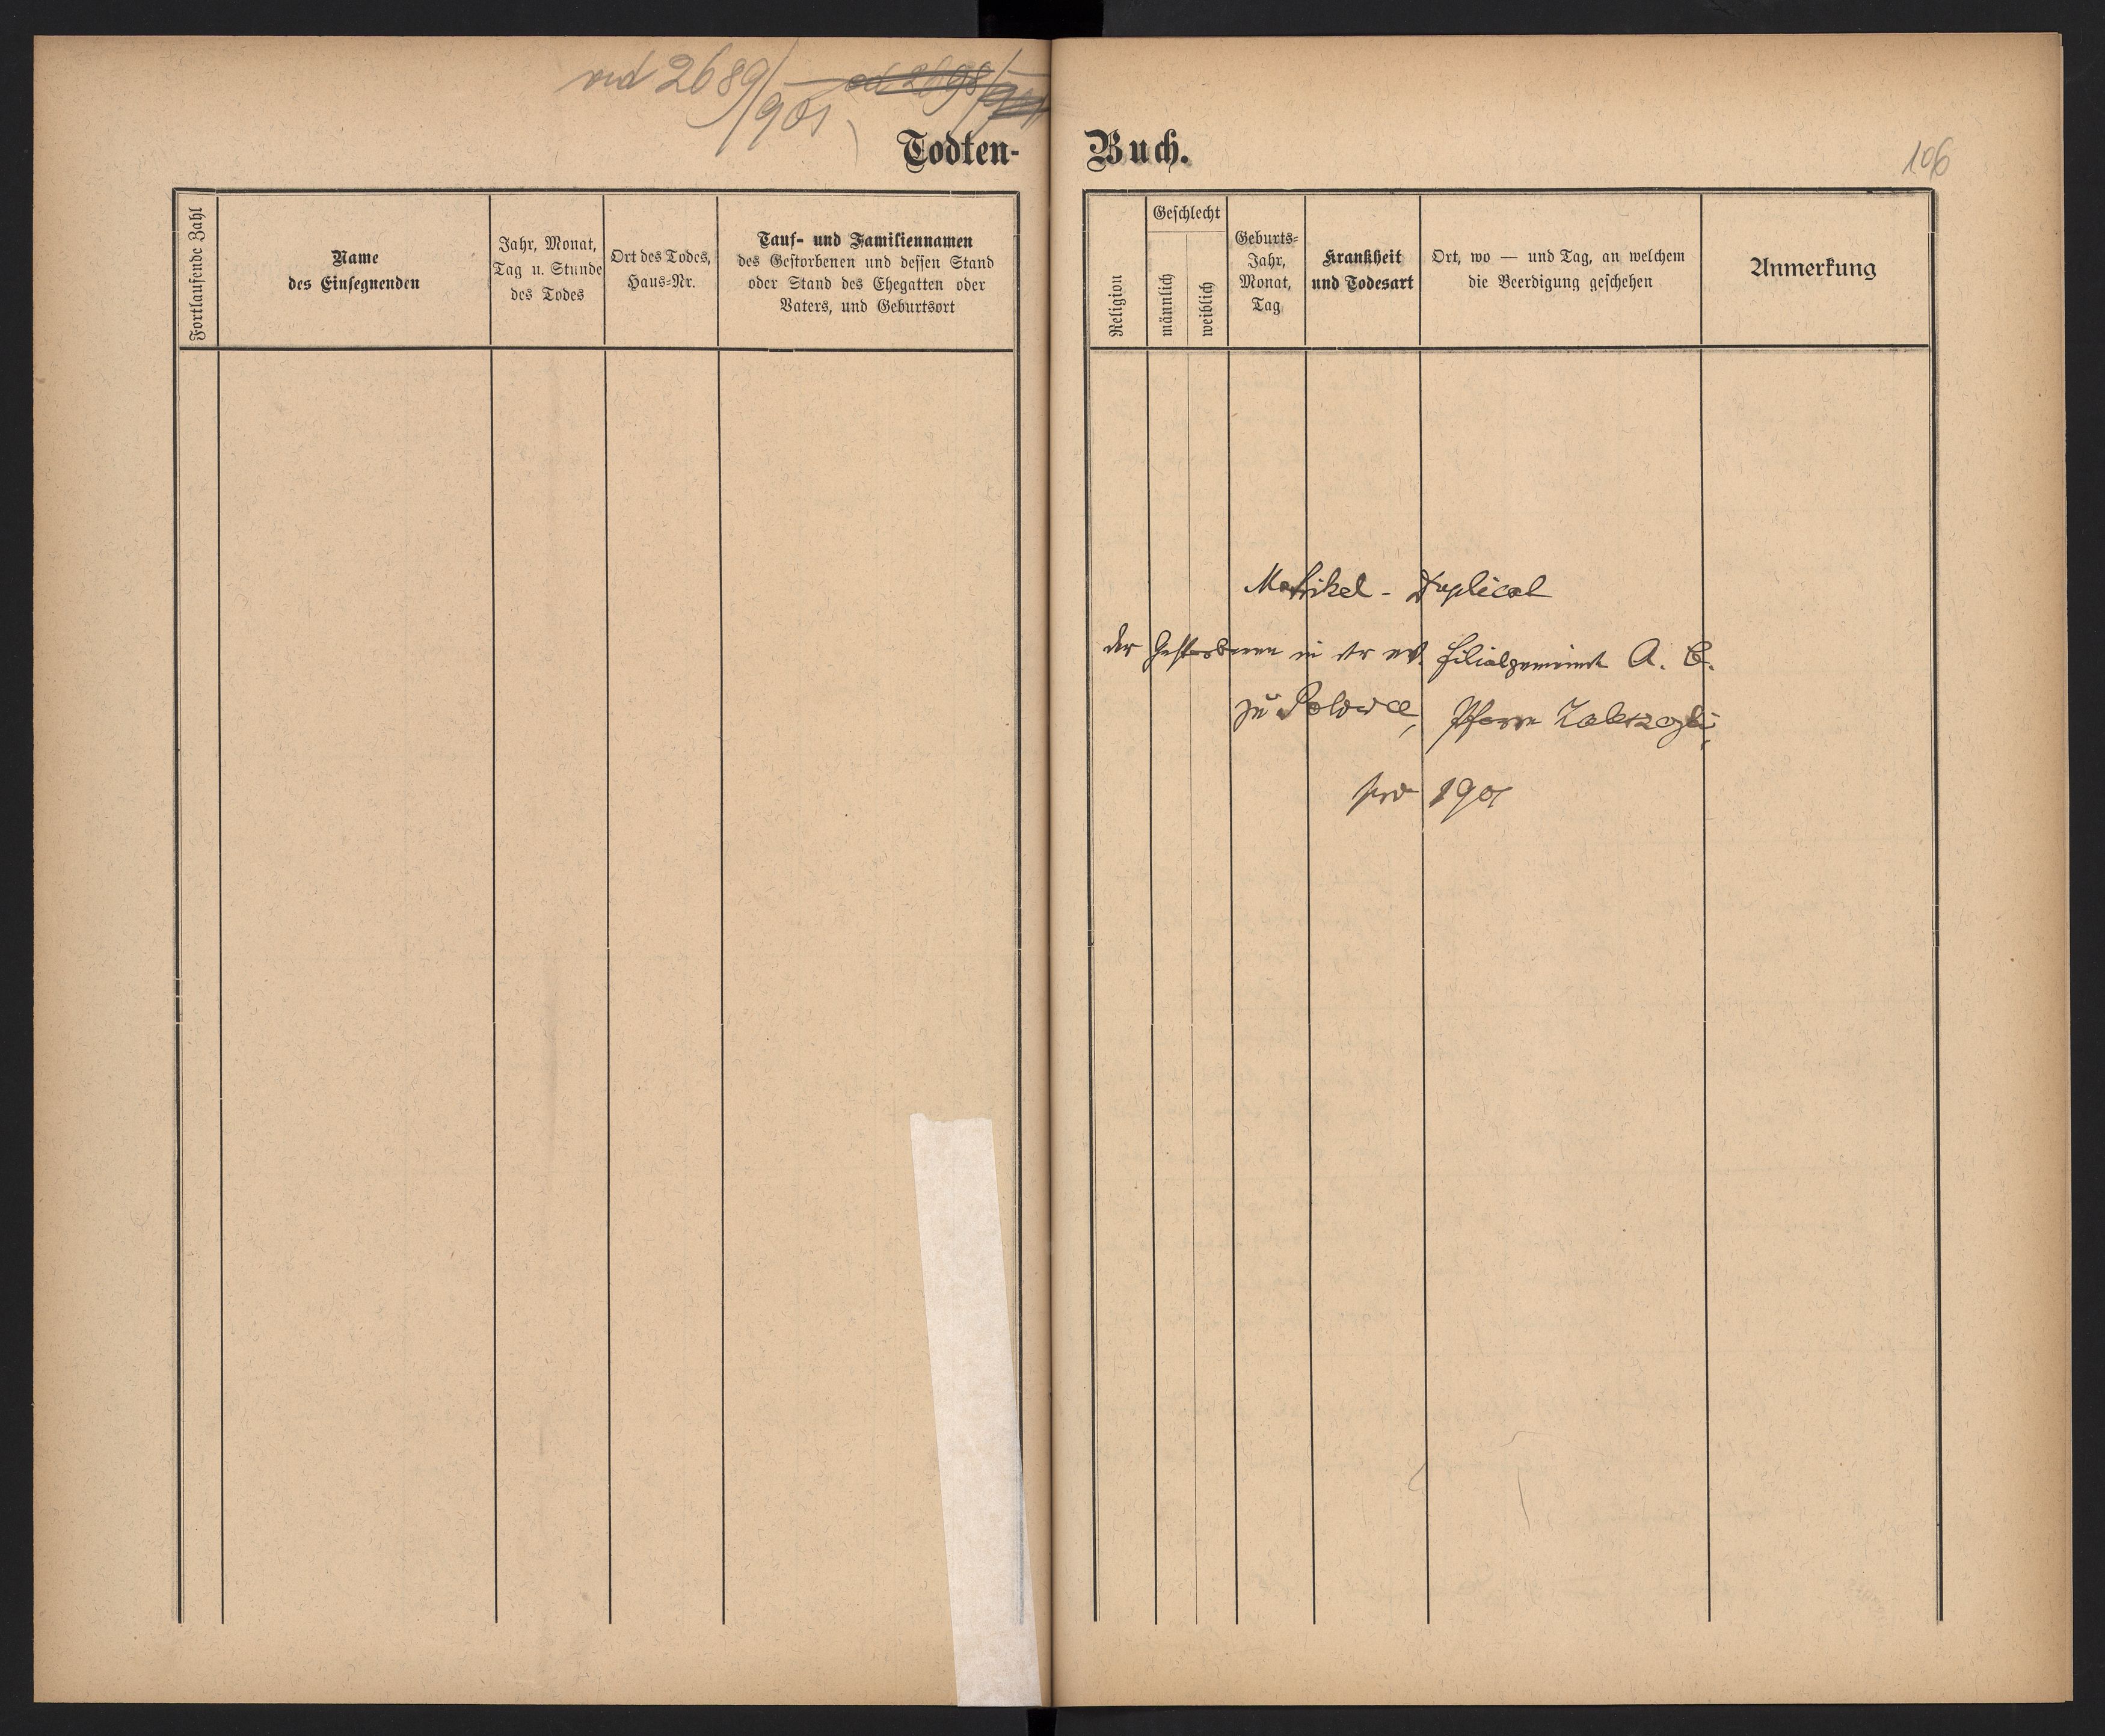 ad 2689/901
ad 2698/901
Todten-
Fortlaufende Zahl
Name
des Einsegnenden
Jahr, Monat,
Tag u. Stunde
des Todes
Ort des Todes,
Haus-Nr.
Tauf- und Familiennamen
des Gestorbenen und dessen Stand
oder Stand des Ehegatten oder
Vaters, und Geburtsort
Buch.
106
Religion
Geschlecht
männlich
weiblich
Geburts-
Jahr,
Monat,
Tag
Krankheit
und Todesart
Ort, wo — und Tag, an welchem
die Beerdigung geschehen
Anmerkung
Matrikel - Duplicat
der Gestorbenen in der ev. Filialgemeinde A. B.
zu Polowce, Pfarre
pro 1901